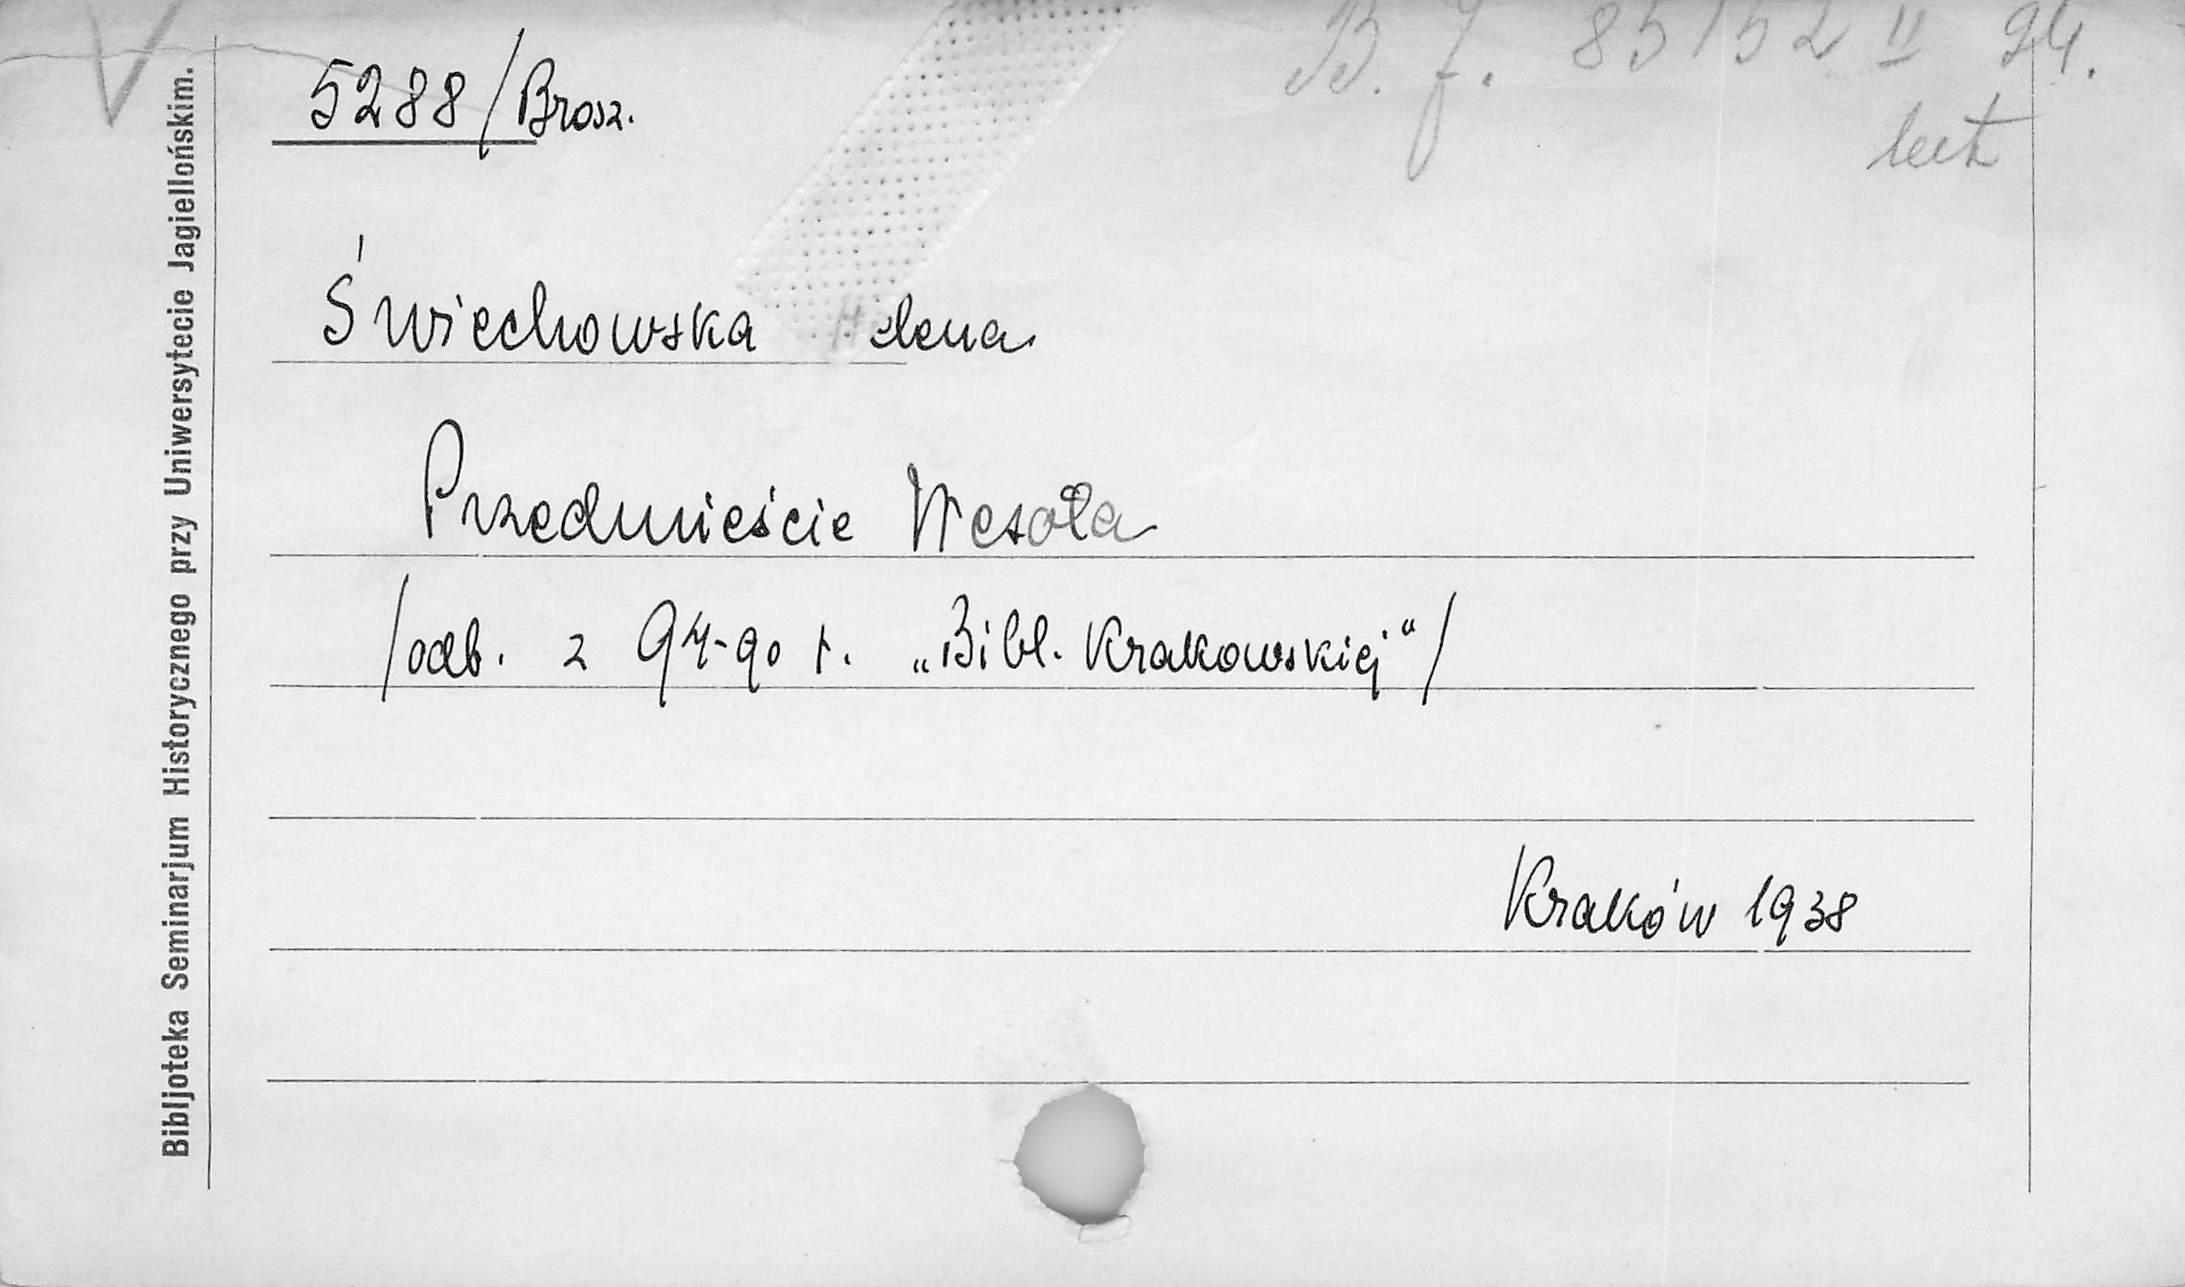 B. J. 85152 II 94.
lect
5288/Brosz.
Świechowska Helena
Przedmieście Wesoła
/odb. z 94-go t. „Bibl. Krakowskiej“/
Kraków 1938
Bibljoteka Seminarjum Historycznego przy Uniwersytecie Jagiellońskim.